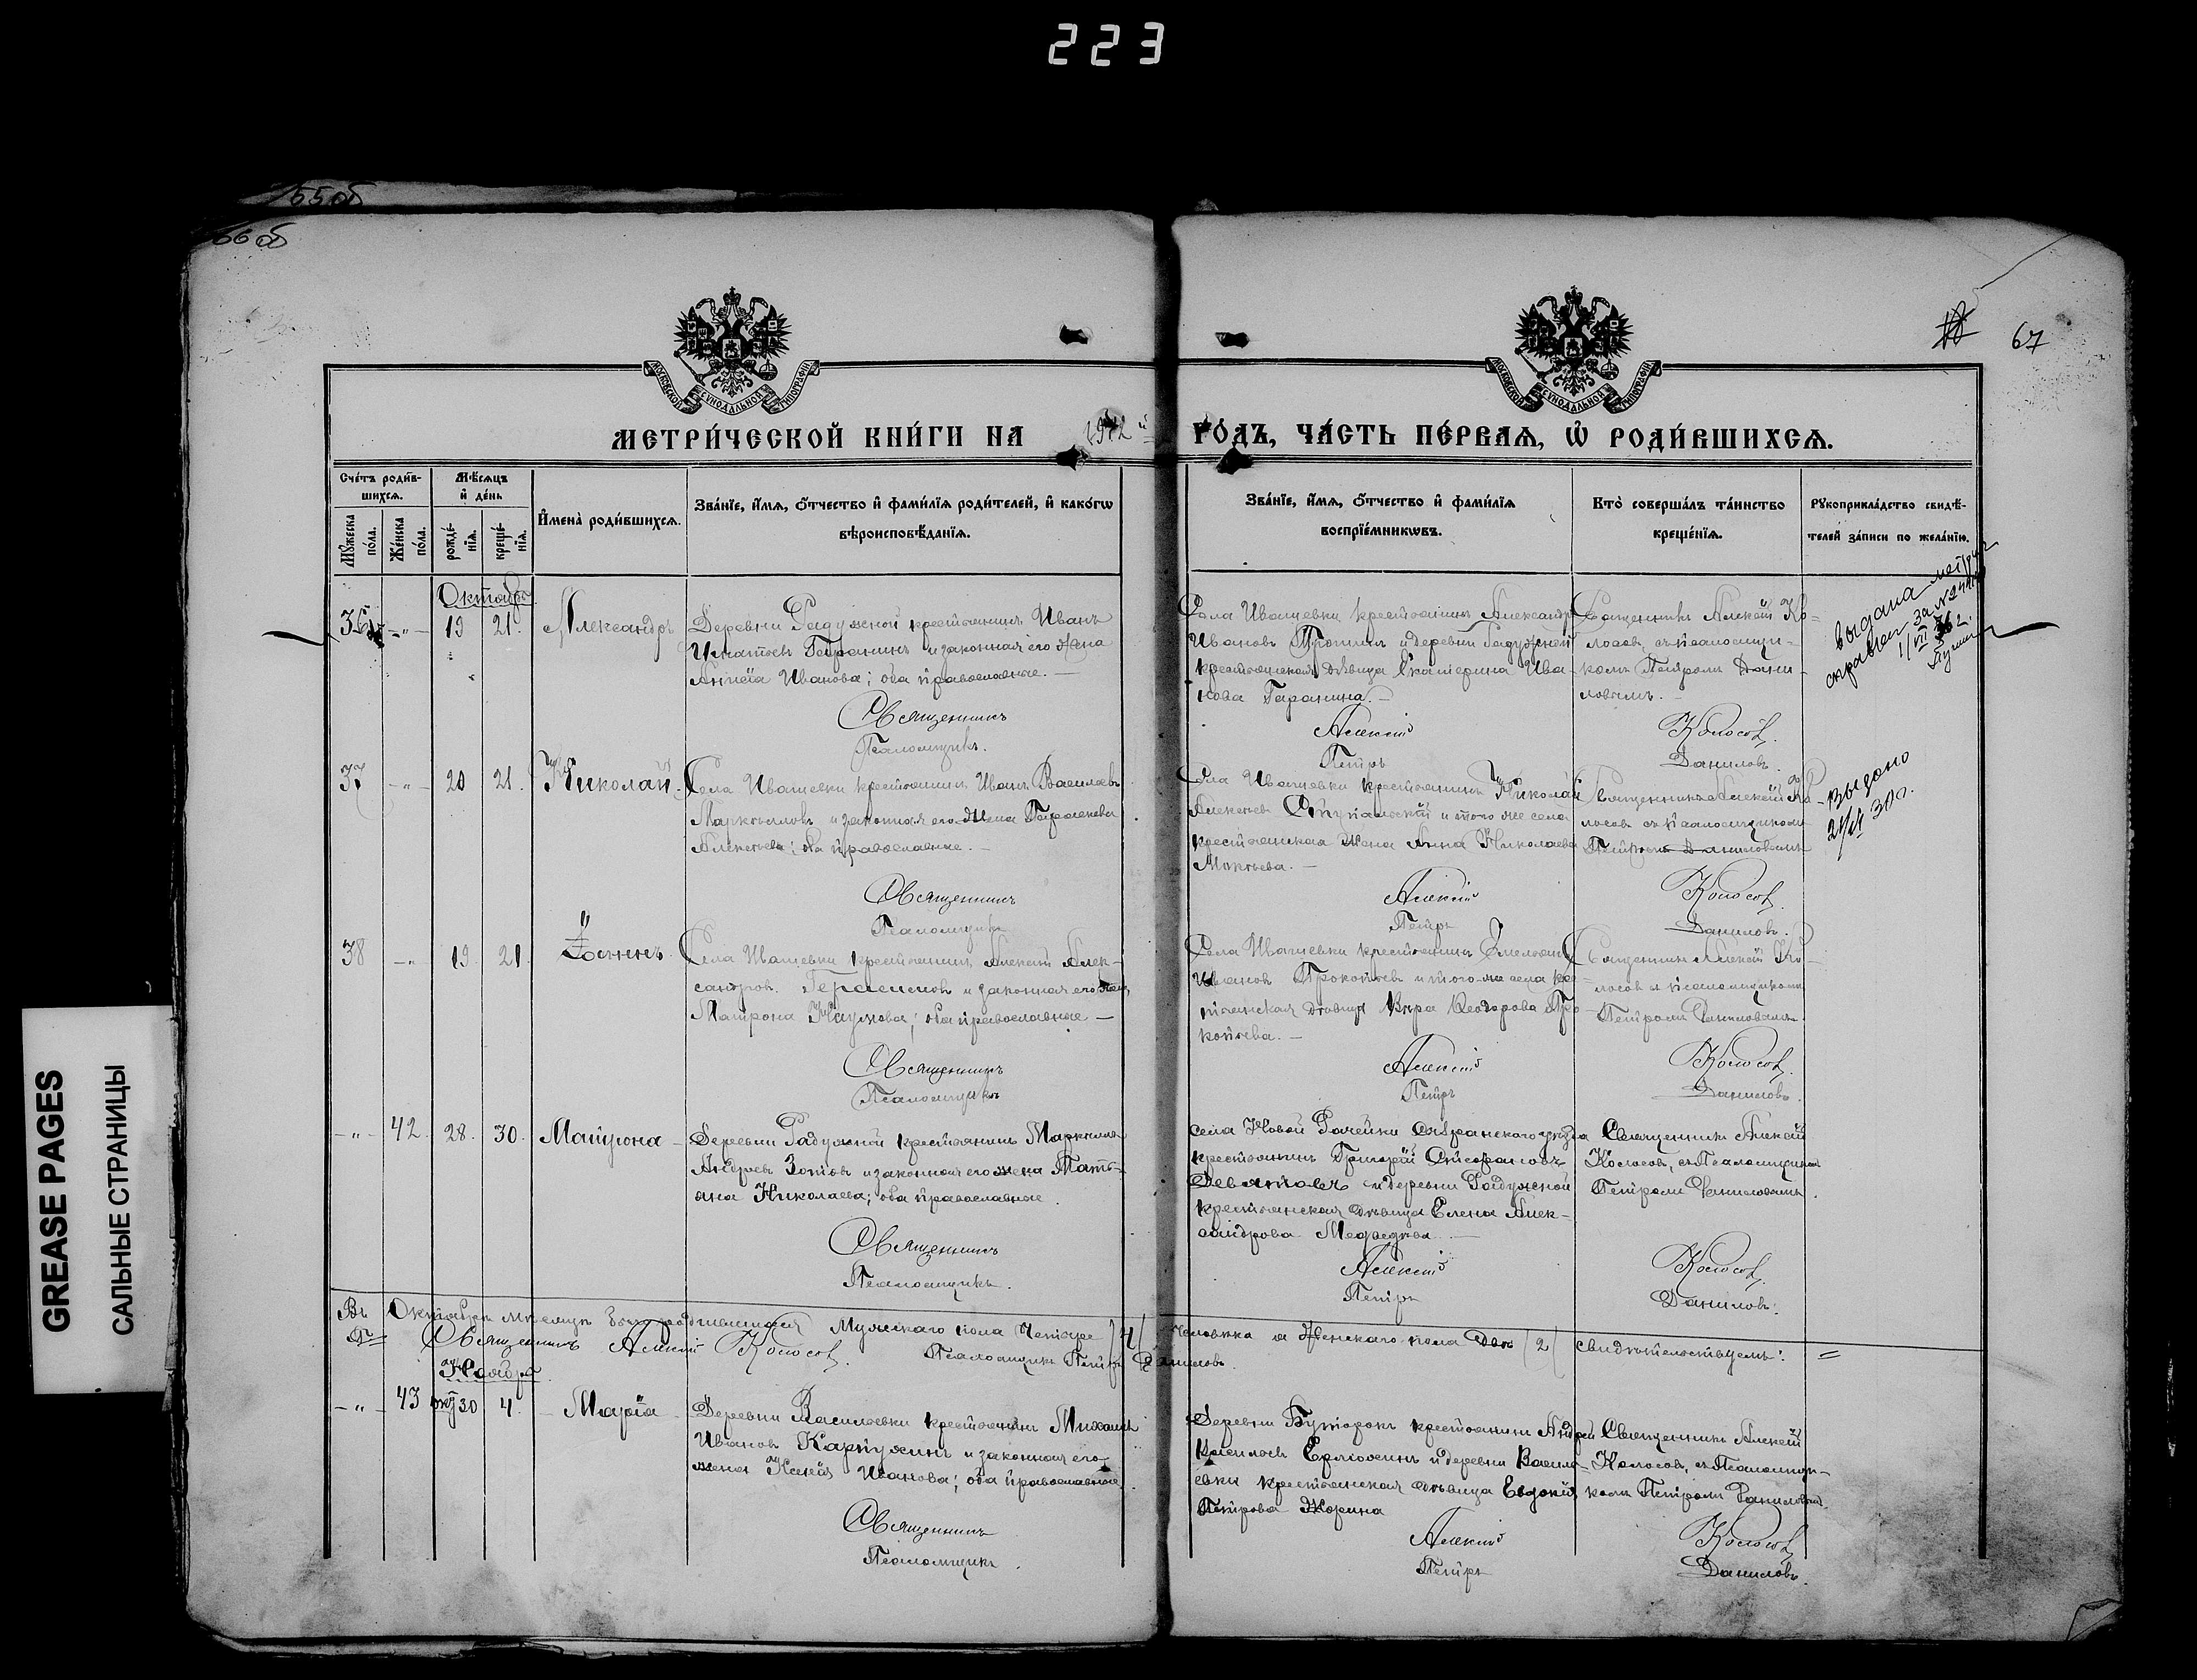 223
55об
66об
67
МОСКОВСКОЙ СѴНОДАЛЬНОЙ ТИПОГРАФІИ
МОСКОВСКОЙ СѴНОДАЛЬНОЙ ТИПОГРАФІИ
МЕТРИ́ЧЕСКОЙ КНИ́ГИ НА 1912 й ГО́ДЪ, ЧА́СТЬ ПЕ́РВАѦ, Ѡ РОДИ́ВШИХСѦ.
Сче́тъ роди́в-
шихсѧ.
Мꙋ́жеска по́ла.
Же́нска по́ла.
Мѣ́сѧцъ
и́ де́нь
рожде́-
нїѧ.
креще́-
нїѧ.
И҆мена̀ роди́вшихсѧ.
Зва́нїе, и́мѧ, ѻ҆́тчество и҆ фами́лїѧ роди́телей, и҆ како́гѡ
вѣроисповѣ́данїѧ.
Зва́нїе, и́мѧ, ѻ҆́тчество и҆ фами́лїѧ
воспрїе́мникѡвъ.
Кто̀ соверша́лъ та́инство
креще́нїѧ.
Рꙋкоприкла́дство свидѣ́-
телей за́писи по жела́нїю.
Октябрь
36 - " - 19 21. Александръ
Деревни Радужной крестьянинъ Иванъ
Игнатьев Гаранинъ и законная его жена
Иванова; оба православные. —
Священникъ
Псаломщикъ.
Села Иващевки крестьянинъ Александръ
Ивановъ и деревни Радужной
крестьянская дѣвица Екатерина Ива-
нова Гаранина. —
Алексій
Петръ
Священникъ Алексій Ко-
лосовъ, съ псаломщи-
комъ Петромъ Дани-
ловымъ. —
Колосовъ.
Даниловъ.
выдана
справка за №
37 - " - 20 21. Николай.
Села Иващевки крестьянинъ Иванъ Васильевъ
и законная его жена
Алексѣева; оба православные. —
Священникъ
Псаломщикъ
Села Иващевки крестьянинъ Николай
Алексѣевъ и того же села
крестьянская жена Анна Николаева
—
Алексій
Петръ
Священникъ Алексій Ко-
лосовъ съ псаломщикомъ
Петромъ Даниловымъ
Колосовъ.
Даниловъ.
выдано
30 г.
38 - " - 19. 21. Іоаннъ.
Села Иващевки крестьянинъ Алексій Алек-
сандров. Герасимовъ и законная его жена
Матрона Наумова; оба православные —
Священникъ
Псаломщикъ
Села Иващевки крестьянинъ Емельянъ
Ивановъ Прокопьевъ и того-же села кре-
стьянская дѣвица Вѣра Ѳеодорова Про-
копьева. —
Алексій
Петръ
Священникъ Алексій Ко-
лосовъ съ псаломщикомъ
Петромъ Даниловымъ.
Колосовъ.
Даниловъ.
- " - 42. 28. 30. Матрона
Деревни Радужной крестьянинъ
Андреевъ Зотовъ и законная его жена Тать-
яна Николаева; оба православные.
Священникъ
Псаломщикъ.
села Новой Рачейки Сызранского уѣзда
крестьянинъ Григорій Стефановъ
Девятовъ и деревни Радужной
крестьянская дѣвица Елена Алек-
сандрова —
Алексій
Петръ
Священникъ Алексій
Колосовъ, съ Псаломщикомъ
Петромъ Даниловымъ.
Колосовъ.
Даниловъ.
Въ Октябрѣ мѣсяцѣ родившихся Мужскаго пола Четыре /4/ человѣка а Женскаго пола Двѣ /2/ свидѣтельствуемъ: =
Священникъ Алексій Колосовъ. Псаломщикъ Петръ Даниловъ.
Ноябрь.
- " - 43 окт 30 4. Марія
Деревни Васильевки крестьянинъ Михаилъ
Ивановъ Карпухинъ и законная его
жена Ксенія Иванова; оба православные.
Священникъ
Псаломщикъ.
Деревни крестьянинъ Андрей
Ермохинъ и деревни Василь-
евки крестьянская дѣвица Евдокія
Петрова Жорина
Алексій
Петръ
Священникъ Алексій
Колосовъ, съ Псаломщи-
комъ Петромъ Даниловымъ.
Колосовъ
Даниловъ.
GREASE PAGES
САЛЬНЫЕ СТРАНИЦЫ